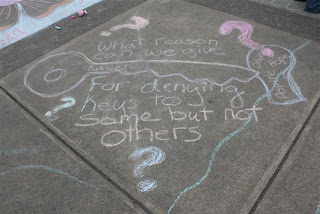 What reason
can we give
For denying
keys to
some but not
others